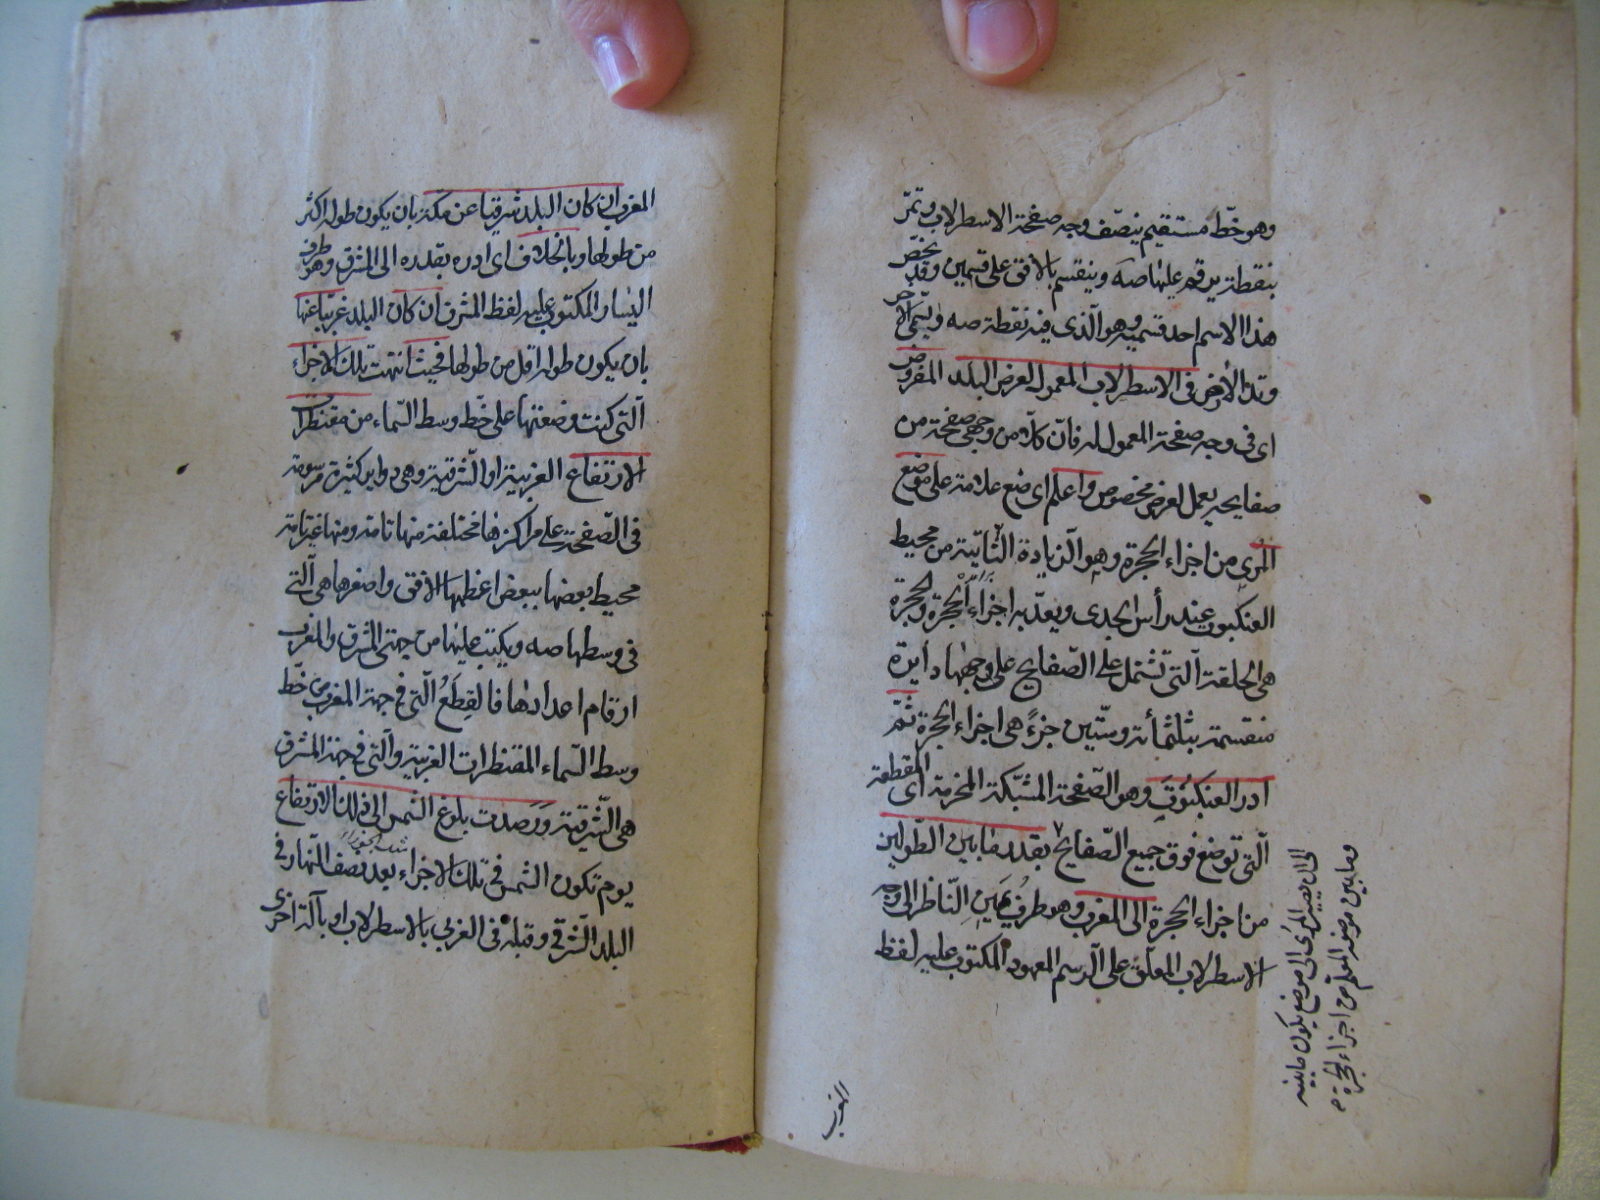 وهو خطّ مستقيم ينصّف وجه صفحة الاسطرلاب وتمرّ
بنقطة يرقم عليها صه وينقسم بالافق على قسمين وقد يخصّ
هذا الاسم احد قسميه وهو الّذى فيه نقطة صه ويسمّى الآخر
وتد الأرض فى الاسطرلاب المعمول لعرض البلد المفروض
اى فى وجه صفحة المعمول له فانّ كلّا من وجهى صفحة من
صفايحه يعمل لعرض مخصوص واعلم اى ضع علامة على موضع
المرى من اجزاء الحجرة وهو الزيادة الثابتة من محيط
العنكبوت عند رأس الجدى ويعدّ به اجزاء الحجرة والحجرة
هى الحلقة الّتى تشتمل على الصّفايح على وجهها دايرة
منقسمة بثلثمأة وستّين جزءً هى اجزاء الحجرة ثمّ
ادر العنكبوت وهو الصّفحة المشبّكة المخرمة اى المقطعة
الّتى توضع فوق جميع الصّفايح بقدر ما بين الطّولين
من اجزاء الحجرة الى المغرب وهو طرف يمين النّاظر الى وجه
الاسطرلاب المعلّق على الرسم المعهود المكتوب عليه لفظ
الى ان يصير المرى الى موضع يكون ما بينه
وما بين موضعه المعلّم من اجزاء الحجرة
المغرب
المغرب ان كان البلد شرقيا عن مكّة بان يكون طوله اكثر
من طولها وبالخلاف اى ادره بقدره الى المشرق وهو طرف
اليسار المكتوب عليه لفظ المشرق ان كان البلد غربيّا عنها
بان يكون طوله اقل من طولها فحيث انتهت تلك الاجزاء
الّتى كنت وضعتها على خطّ وسط السّماء من مقنطرات
الارتفاع الغربية او الشّرقية وهى دواير كثيرة مرسومة
فى الصّفحة على مراكزها مختلفة منها تامة ومنها غير تامة
محيط بعضها ببعض اعظمها الافق واصغرها هى الّتى
فى وسطها صه ويكتب عليها من جهتى المشرق والمغرب
ارقام اعدادها فالقِطَعُ الّتى فى جهة المغرب من خطّ
وسط السّماء المقنطرات الغربية والّتى فى جهة المشرق
هى الشّرقية ورصدت بلوغ الشمس الى ذلك الارتفاع
يوم تكون الشمس فى تلك الاجزاء بعد نصف النّهار فى
البلد الشّرقى وقبله فى الغربى بالاسطرلاب او بآلة اخرى